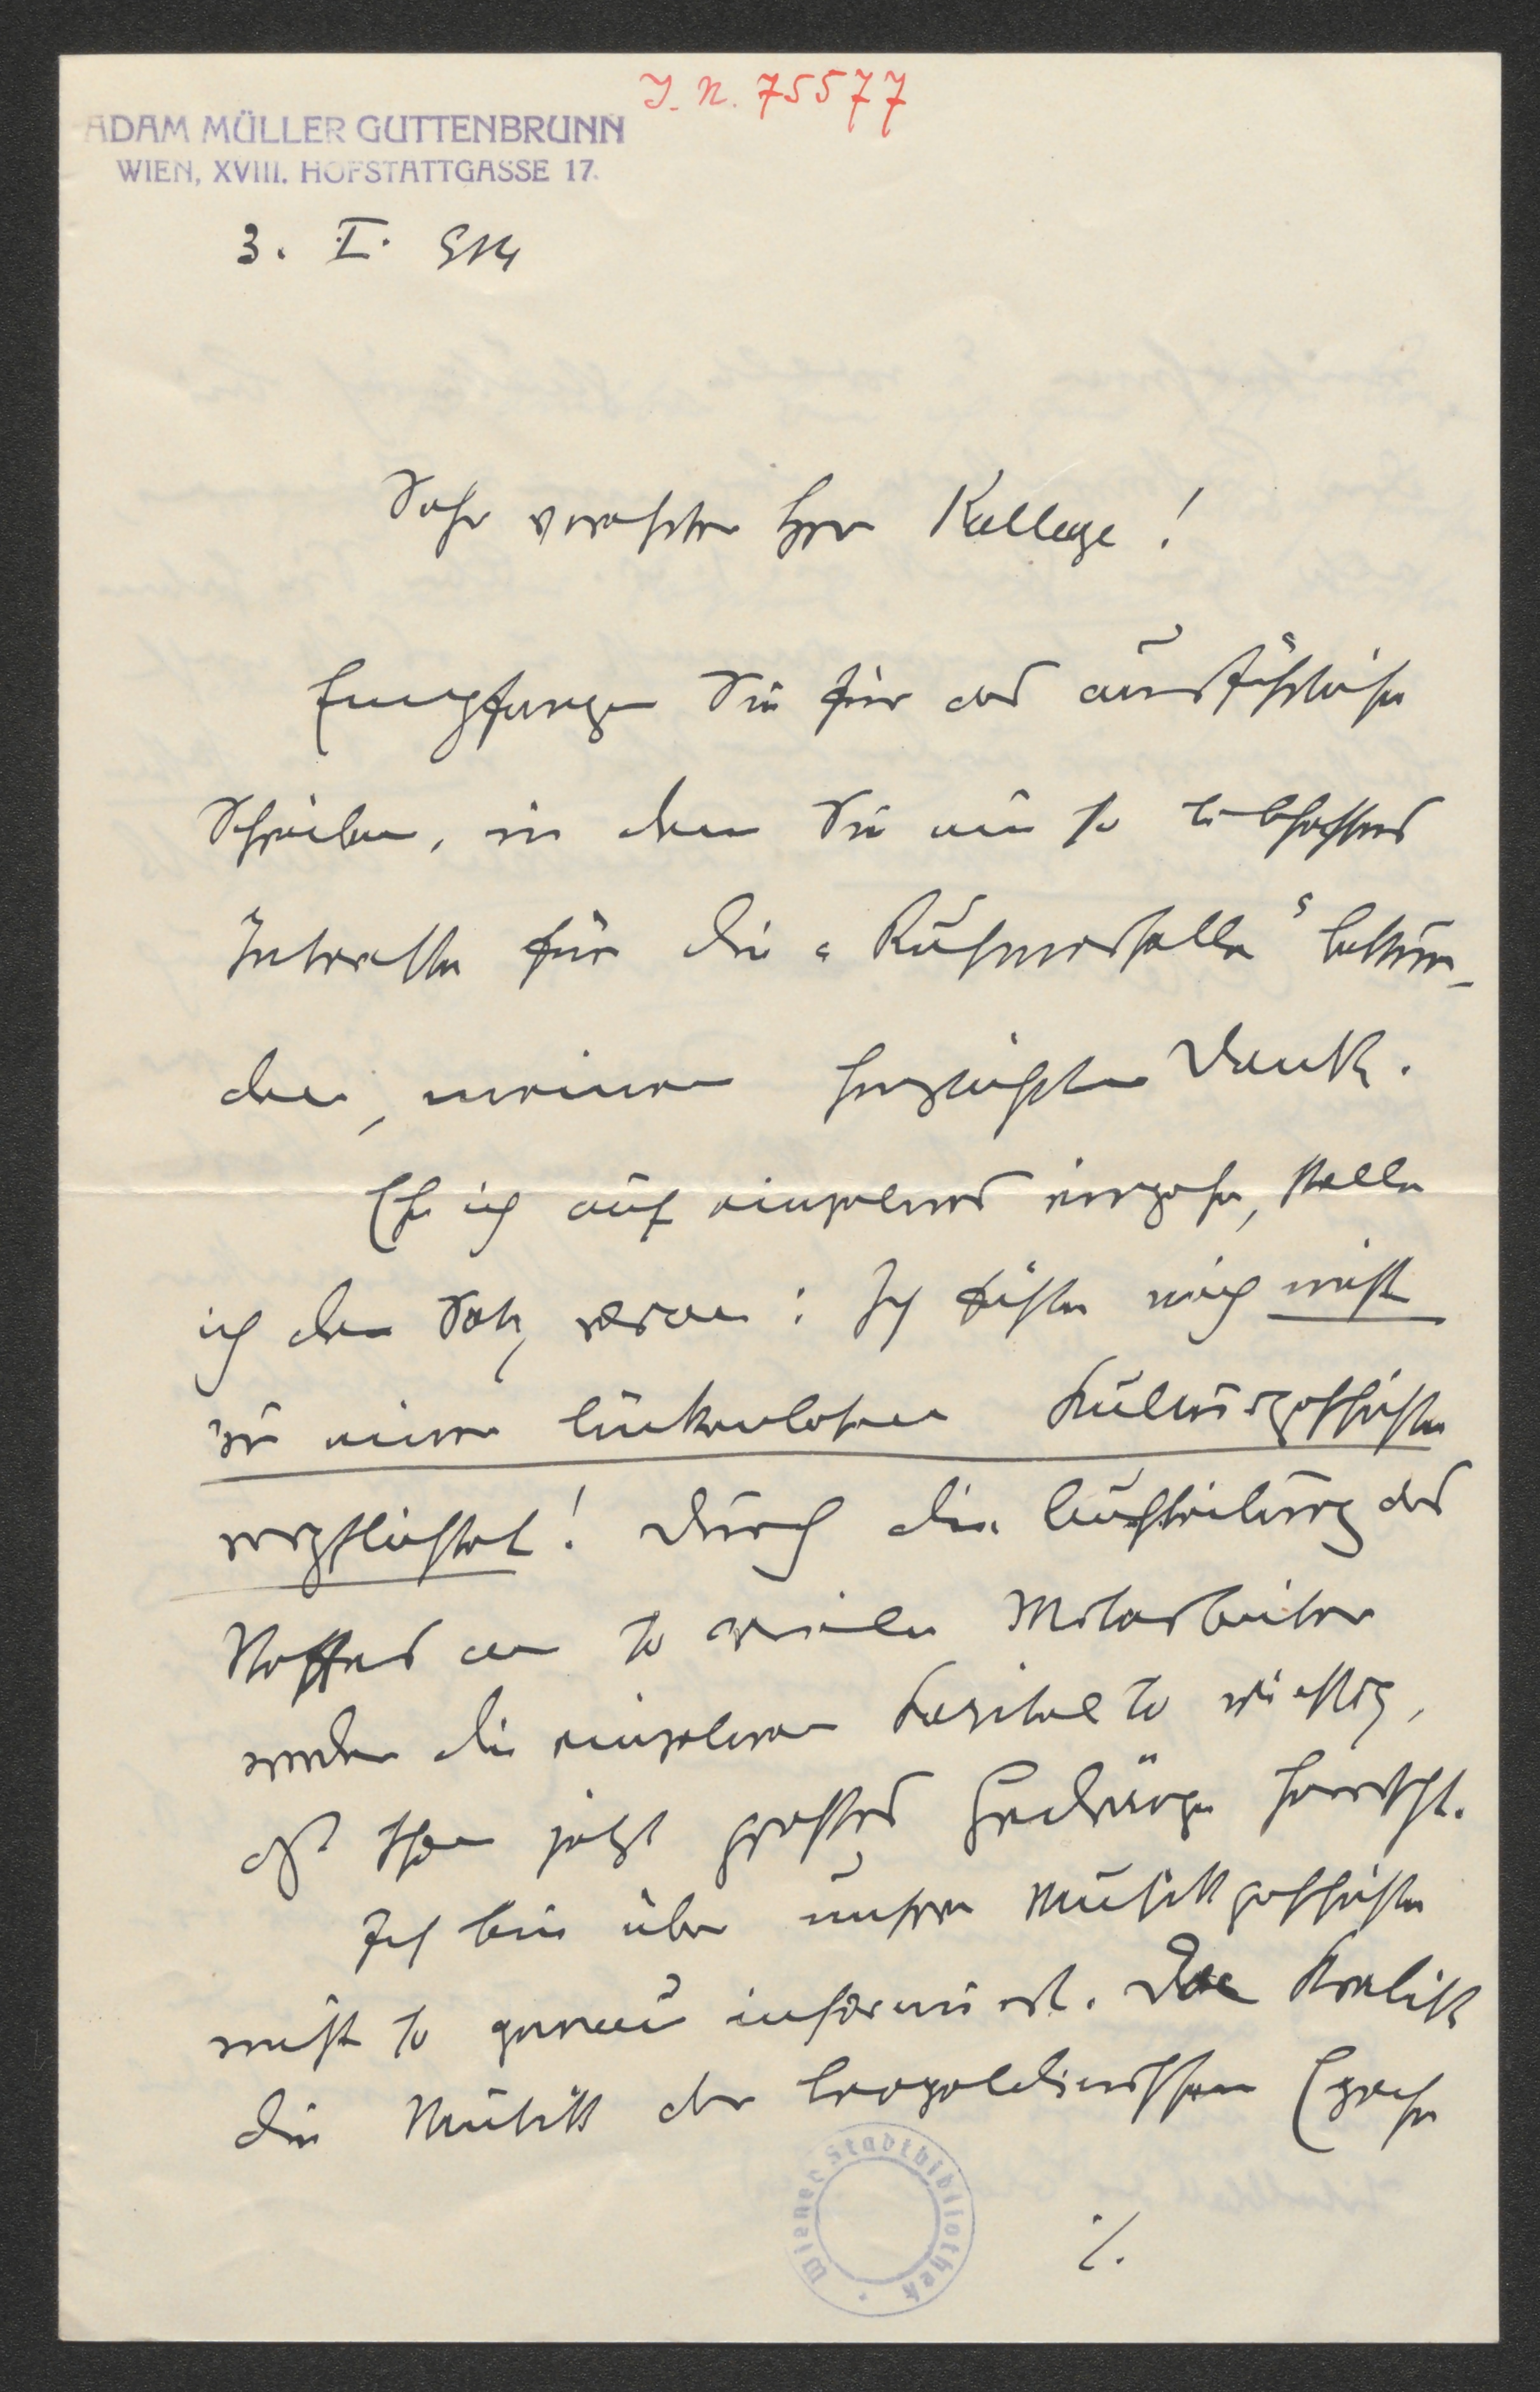 J. N. 75577
ADAM MÜLLER GUTTENBRUNN
WIEN, XVIII. HOFSTATTGASSE 17.
3. I. 914
Sehr verehrter Herr Kollege!
Empfangen Sie für das ausführliche
Schreiben, in dem Sie ein so lebhaftes
Interesse für die „Ruhmeshalle" bekun-
den, meinen herzlichsten Dank.
Ehe ich auf einzelnes eingehe, stelle
ich den Satz voran: Ich fühle mich nicht
zu einer lückenlosen Kulturgeschichte
verpflichtet! Durch die Aufteilung des
Stoffes an so viele Mitarbeiter
werden die einzelnen Kapitel so wichtig,
daß schon jetzt großes Gedränge herrscht.
Ich bin über unsere Musikgeschichte
nicht so genau informiert. Daß Kralik
die Musik der leopoldinischen Epoche
Wiener Stadtbibliothek
./.